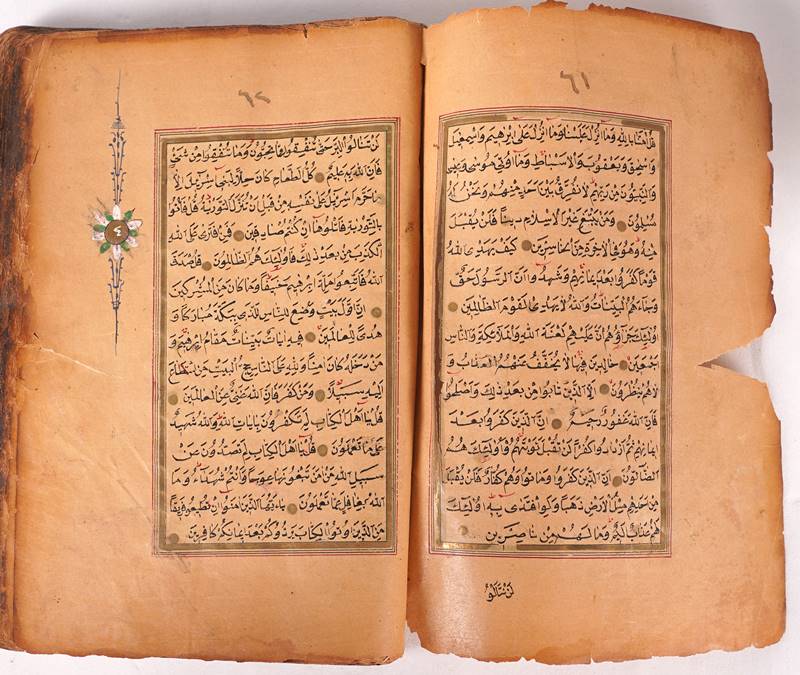 ٦١
قُلْ اٰمَنَّا بِاللّٰهِ وَمَا اُنْزِلَ عَلَيْنَا وَمَا اُنْزِلَ عَلٰى اِبْرٰهِيمَ وَاِسْمٰعِيلَ
وَاِسْحٰقَ وَيَعْقُوبَ وَالْاَسْبَاطِ وَمَا اُوتِيَ مُوسٰى وَعِيسٰى
وَالنَّبِيُّونَ مِنْ رَبِّهِمْ لَا نُفَرِّقُ بَيْنَ اَحَدٍ مِنْهُمْ وَنَحْنُ لَهُ
مُسْلِمُونَ وَمَنْ يَبْتَغِ غَيْرَ الْاِسْلَامِ دِينًا فَلَنْ يُقْبَلَ
مِنْهُ وَهُوَ فِي الْاٰخِرَةِ مِنَ الْخَاسِرِينَ كَيْفَ يَهْدِي اللّٰهُ
قَوْمًا كَفَرُوا بَعْدَ اِيمَانِهِمْ وَشَهِدُوا اَنَّ الرَّسُولَ حَقٌّ
وَجَاءَهُمُ الْبَيِّنَاتُ وَاللّٰهُ لَا يَهْدِي الْقَوْمَ الظَّالِمِينَ
اُولٰئِكَ جَزَاؤُهُمْ اَنَّ عَلَيْهِمْ لَعْنَةَ اللّٰهِ وَالْمَلَائِكَةِ وَالنَّاسِ
اَجْمَعِينَ خَالِدِينَ فِيهَا لَا يُخَفَّفُ عَنْهُمُ الْعَذَابُ وَ
لَا هُمْ يُنْظَرُونَ اِلَّا الَّذِينَ تَابُوا مِنْ بَعْدِ ذٰلِكَ وَاَصْلَحُوا
فَاِنَّ اللّٰهَ غَفُورٌ رَحِيمٌ اِنَّ الَّذِينَ كَفَرُوا بَعْدَ
اِيمَانِهِمْ ثُمَّ ازْدَادُوا كُفْرًا لَنْ تُقْبَلَ تَوْبَتُهُمْ وَاُولٰئِكَ هُمُ
الضَّالُّونَ اِنَّ الَّذِينَ كَفَرُوا وَمَاتُوا وَهُمْ كُفَّارٌ فَلَنْ يُقْبَلَ
مِنْ اَحَدِهِمْ مِلْءُ الْاَرْضِ ذَهَبًا وَلَوِ افْتَدٰى بِهِ اُولٰئِكَ
لَهُمْ عَذَابٌ اَلِيمٌ وَمَا لَهُمْ مِنْ نَاصِرِينَ
لَنْ تَنَالُوا
٦٢
لَنْ تَنَالُوا الْبِرَّ حَتّٰى تُنْفِقُوا مِمَّا تُحِبُّونَ وَمَا تُنْفِقُوا مِنْ شَيْءٍ
فَاِنَّ اللّٰهَ بِهِ عَلِيمٌ كُلُّ الطَّعَامِ كَانَ حِلًّا لِبَنِي اِسْرَائِيلَ اِلَّا
مَا حَرَّمَ اِسْرَائِيلُ عَلٰى نَفْسِهِ مِنْ قَبْلِ اَنْ تُنَزَّلَ التَّوْرٰيةُ قُلْ فَاْتُوا
بِالتَّوْرٰيةِ فَاتْلُوهَا اِنْ كُنْتُمْ صَادِقِينَ فَمَنِ افْتَرٰى عَلَى اللّٰهِ
الْكَذِبَ مِنْ بَعْدِ ذٰلِكَ فَاُولٰئِكَ هُمُ الظَّالِمُونَ قُلْ صَدَقَ
اللّٰهُ فَاتَّبِعُوا مِلَّةَ اِبْرٰهِيمَ حَنِيفًا وَمَا كَانَ مِنَ الْمُشْرِكِينَ
اِنَّ اَوَّلَ بَيْتٍ وُضِعَ لِلنَّاسِ لَلَّذِي بِبَكَّةَ مُبَارَكًا وَ
هُدًى لِلْعَالَمِينَ فِيهِ اٰيَاتٌ بَيِّنَاتٌ مَقَامُ اِبْرٰهِيمَ وَ
مَنْ دَخَلَهُ كَانَ اٰمِنًا وَلِلّٰهِ عَلَى النَّاسِ حِجُّ الْبَيْتِ مَنِ اسْتَطَاعَ
اِلَيْهِ سَبِيلًا وَمَنْ كَفَرَ فَاِنَّ اللّٰهَ غَنِيٌّ عَنِ الْعَالَمِينَ
قُلْ يَا اَهْلَ الْكِتَابِ لِمَ تَكْفُرُونَ بِاٰيَاتِ اللّٰهِ وَاللّٰهُ شَهِيدٌ
عَلٰى مَا تَعْمَلُونَ قُلْ يَا اَهْلَ الْكِتَابِ لِمَ تَصُدُّونَ عَنْ
سَبِيلِ اللّٰهِ مَنْ اٰمَنَ تَبْغُونَهَا عِوَجًا وَاَنْتُمْ شُهَدَاءُ وَمَا
اللّٰهُ بِغَافِلٍ عَمَّا تَعْمَلُونَ يَا اَيُّهَا الَّذِينَ اٰمَنُوا اِنْ تُطِيعُوا فَرِيقًا
مِنَ الَّذِينَ اُوتُوا الْكِتَابَ يَرُدُّوكُمْ بَعْدَ اِيمَانِكُمْ كَافِرِينَ
٤